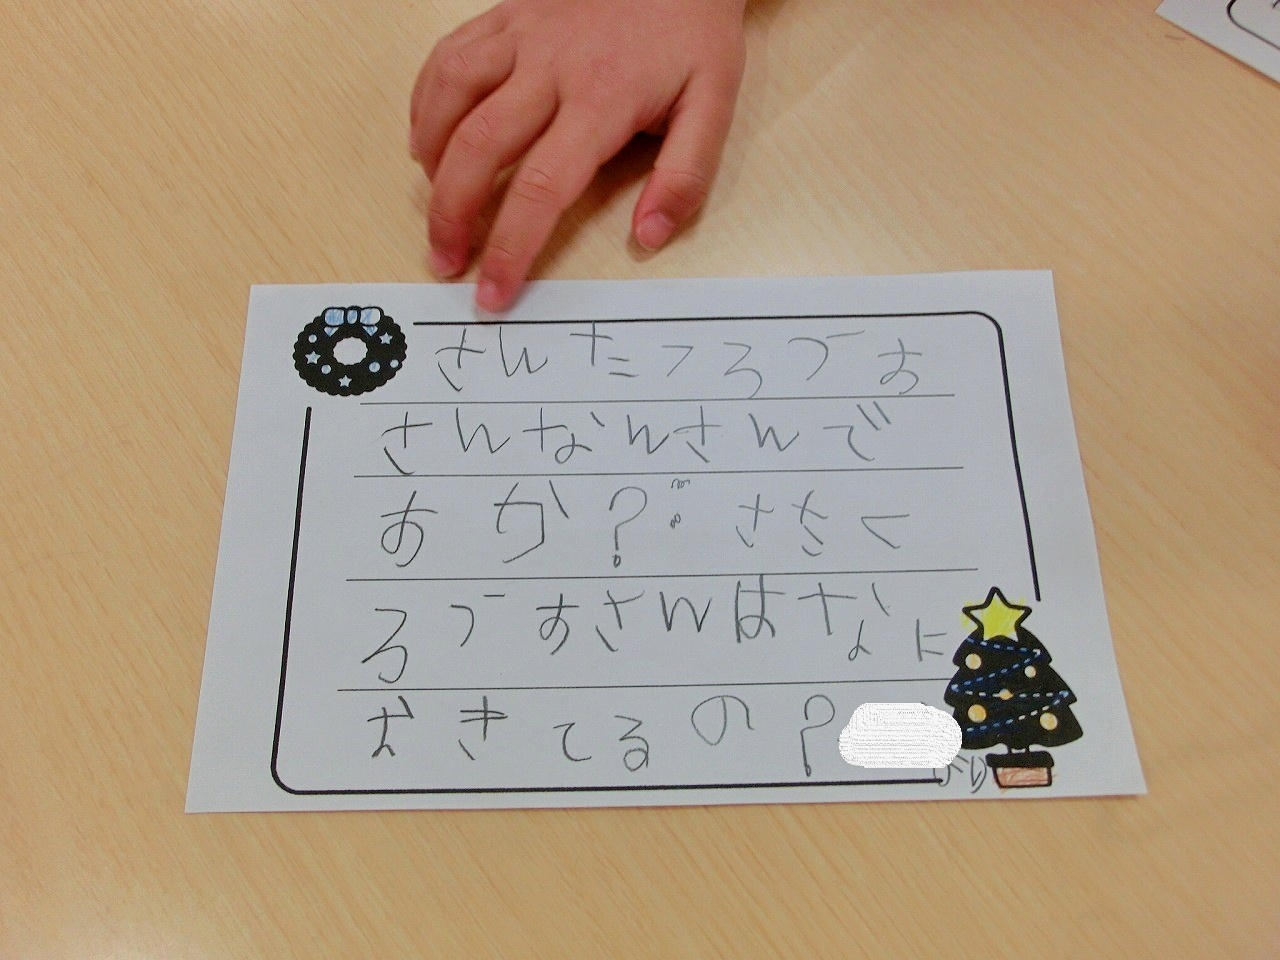 さんたつろづす
さんなんさんで
すか?ささく
ろづすさんはなに
きてるの?
より